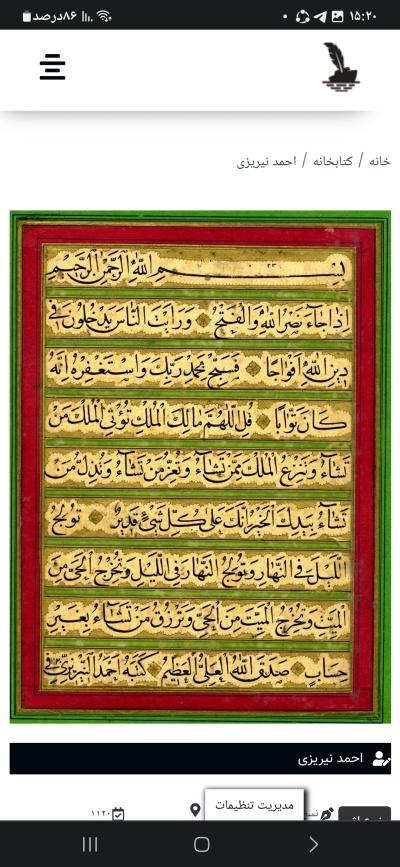 ۱۵:۲۰
۸۶درصد
خانه / کتابخانه / احمد نیریزی
بسم الله الرحمن الرحیم
اذا جاء نصر الله والفتح ورایت الناس یدخلون فی
دین الله افواجا فسبح بحمد ربک واستغفره انه
کان توابا قل اللهم مالک الملک تؤتی الملک من
تشاء وتنزع الملک ممن تشاء وتعز من تشاء وتذل من
تشاء بیدک الخیر انک علی کل شیئ قدیر تولج
اللیل فی النهار وتولج النهار فی اللیل وتخرج الحی من
المیت وتخرج المیت من الحی وترزق من تشاء بغیر
حساب صدق الله العلی العظیم کتبه احمد النیریزی
احمد نیریزی
مدیریت تنظیمات
۱۱۲۰